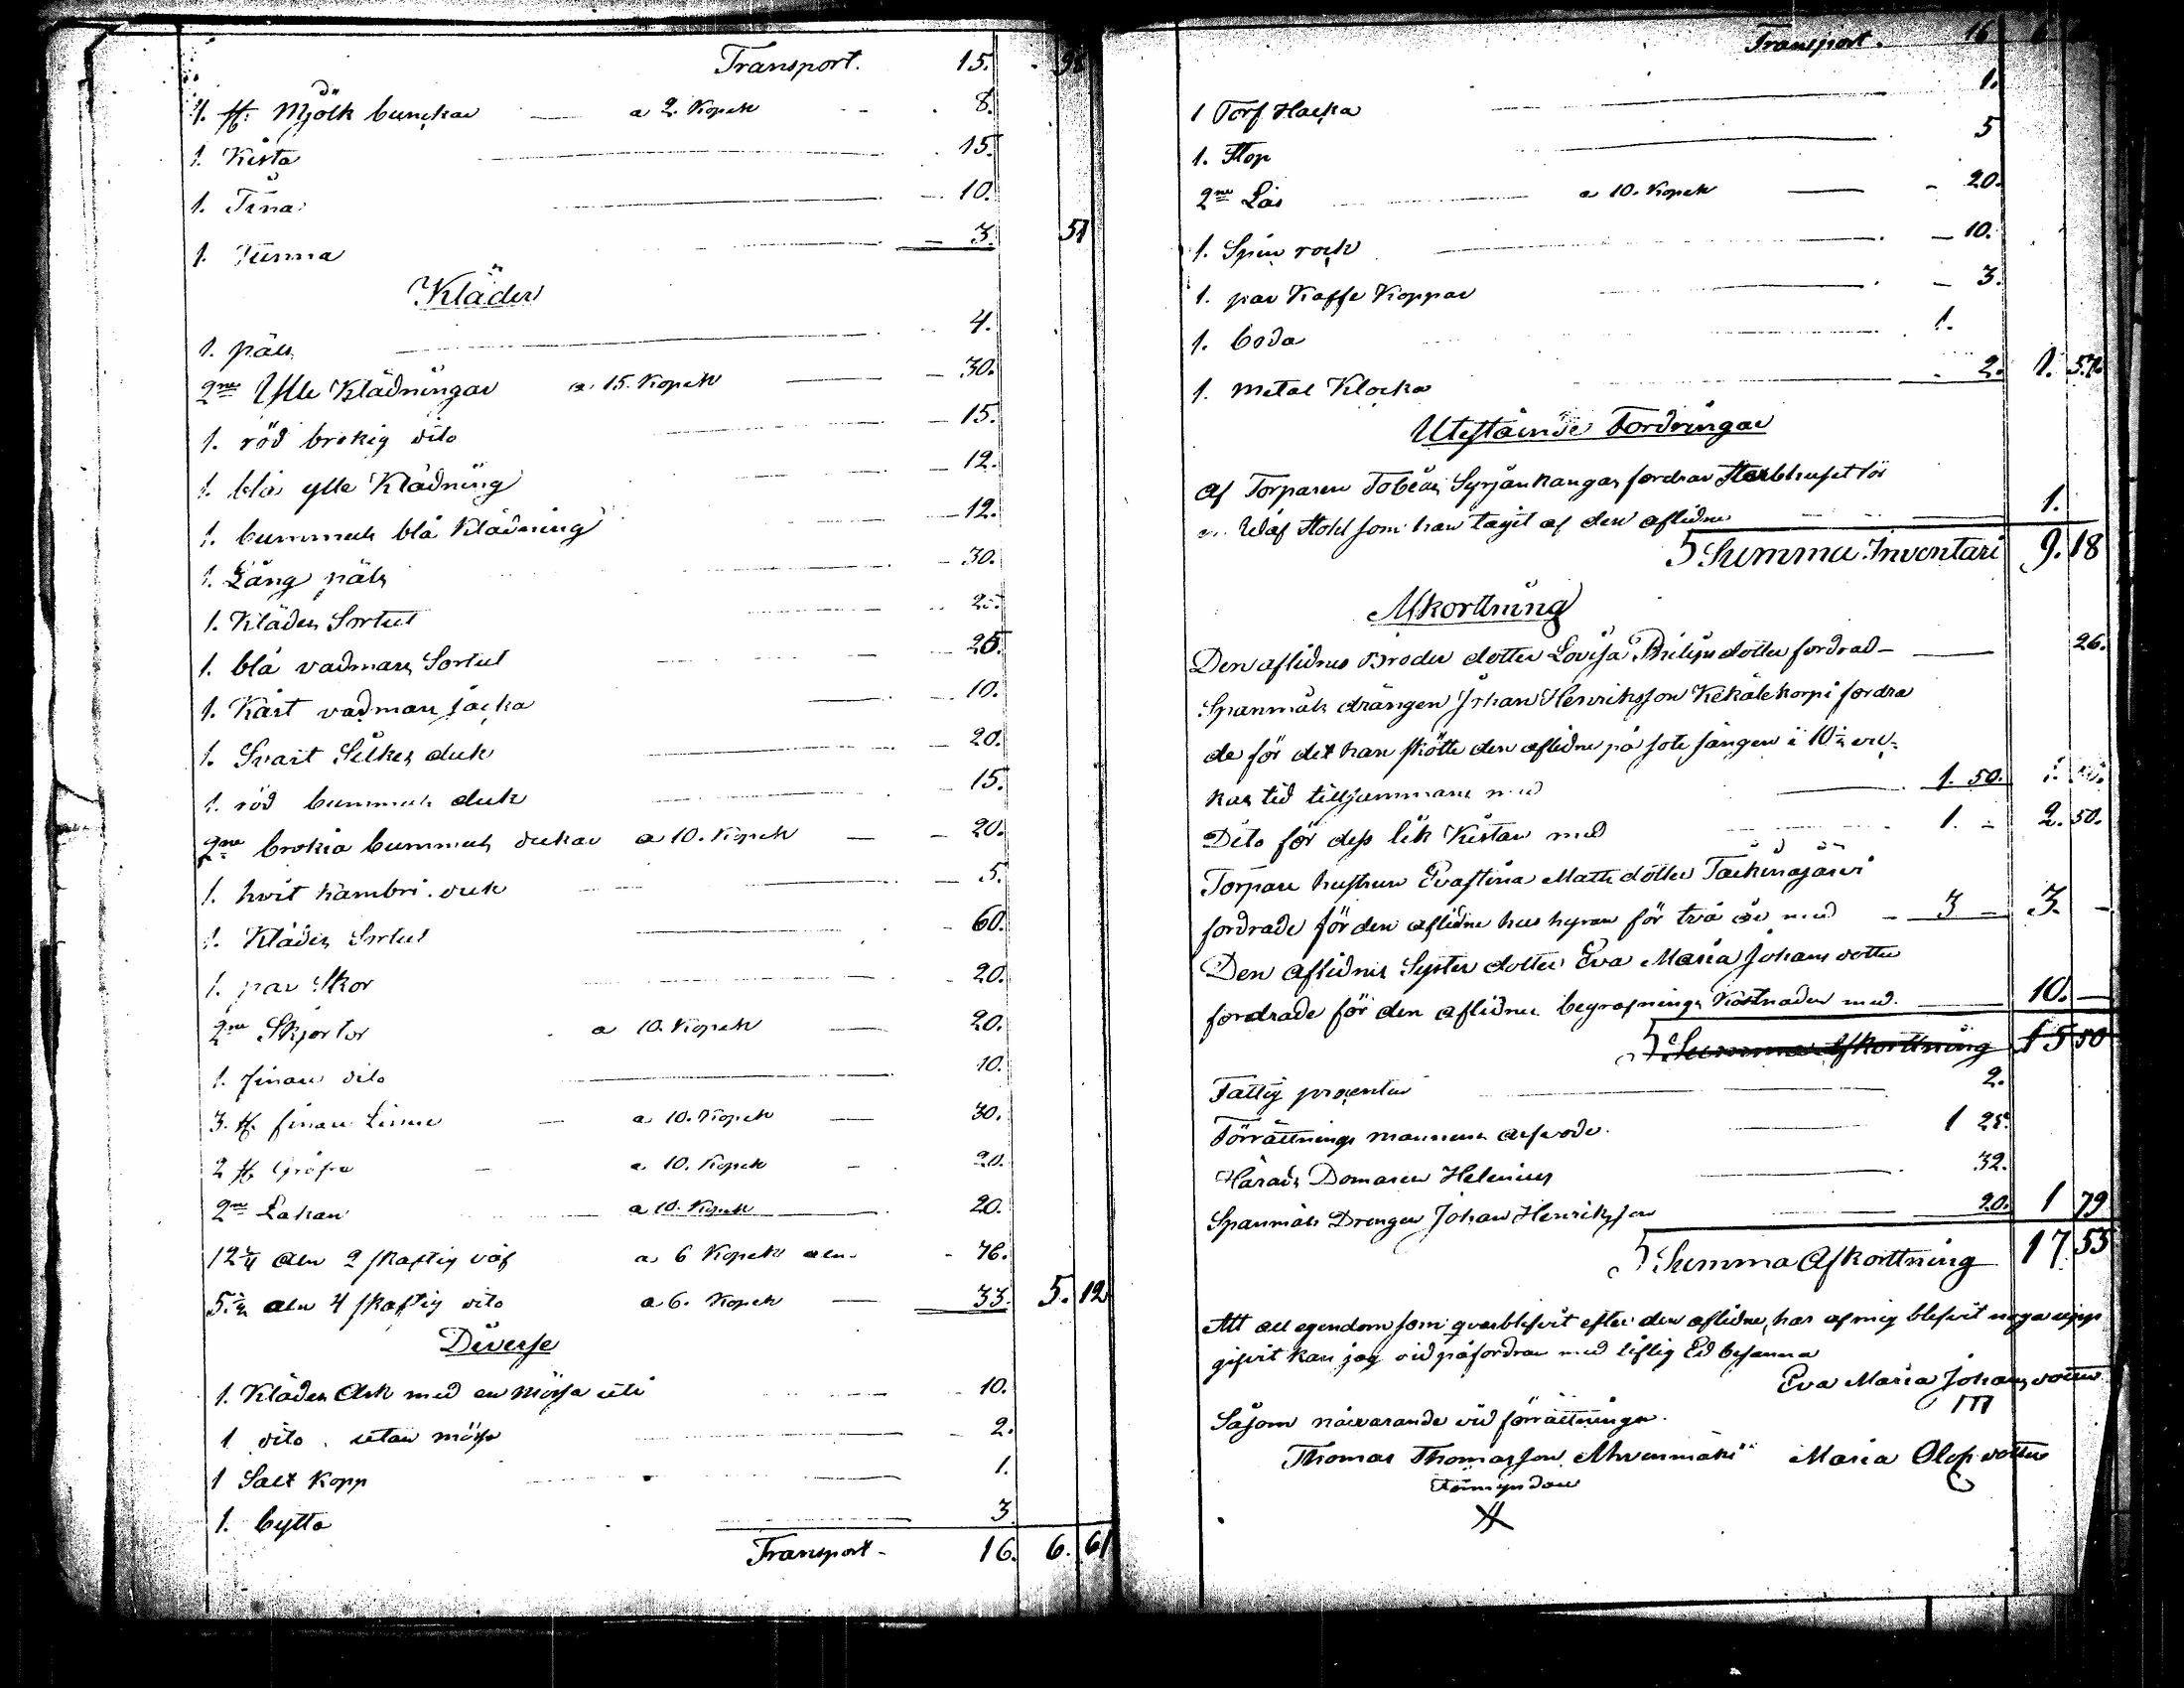 Transport. 15. 98
4. st. Mjölk bunckar a 2. Kopek 8.
1. Kista 15.
1. Tina 10.
1. Tunna 3. 51
Kläder
1. päls 4.
2ne Ylle Klädningar a 15. Kopek 30.
1. röd brokig dito 15.
1. blå ylle Klädning 12.
1. bummuls blå Klädning 12.
1. Lång päls 30.
1. Klädes Sortut 25.
1. blå vadmans Sortut 25.
1. Kart vadmans jacka 10.
1. Svart Silkes duk 20.
1. röd bummuls duk 15.
2ne brokia bummuls dukar a 10. Kopek 20.
1. hvit kambri duk 5.
1. Klädes Sortut 60.
1. par Skor 20.
2ne Skjortor a 10. Kopek 20.
1. finare dito 10.
3. st. finare Linne a 10. Kopek 30.
2 st. Gröfre a 10. Kopek 20.
2ne Lakan a 10. Kopek 20.
12 ¾ aln 2 skaftig väf a 6 Kopek aln 76.
5 ½ aln 4 skaftig dito a 6. Kopek 33. 5. 12
Diverse
1. Klädes Ask med en mössa uti 10.
1 dito utan mössa 2.
1 Salt Kopp 1.
1. bytta 3
Transport 16. 6. 61
Transport. 16 6
1 Torf Hacka 1.
1. Stop 5
2ne Lås a 10. Kopek 20.
1. Spin rock 10.
1. par Kaffe Koppar 3.
1. boda 1.
1. metal Klocka 2. 1. 57.
Utestående Fordringar
Af Torparen Tobias Syrjänkangas fordrar Sterbhuset för
en Wäf Stohl som han tagit af den aflidne 1.
Summa Inventari 9. 18
Afkorttning
Den aflidnes Broders dotter Lovisa Philipsdotter fordrad 26.
Spanmåls drängen Johan Henriksson Kekälekorpi fordra
de för det han skötte den aflidne på sotesängen i 10 ½ vec-
kas tid tillsammans med 1. 50.
Dito för dess lik Kistan med 1. 2. 50.
Torpare hustrun Evastina Matts dotter Tackinajärvi
fordrade för den aflidne hus hyran för två år med 3 3.
Den Aflidnes Syster dotter Eva Maria Johans dotter
fordrade för den aflidnes begrafnings Kostnader med. 10.
Summa Afkorttning 15 50
Fattig procenten 2.
Förrättnings mannens arfvode. 1 25
Härads Domaren Helenius 32.
Spanmåls Drengen Johan Henriksson 20. 1 79
Summa Afkorttning 17. 55
Att all egendom som qvarblifvit efter den aflidne, har af mig blifvit noga upp
gifvit kan jag vid påfordran med liflig Ed besanna
Eva Maria Johans dotter
Såsom närvarande vid förrättningen.
Thomas Thomasson Ahvenmäki Maria Olofs dotter
Förmyndare